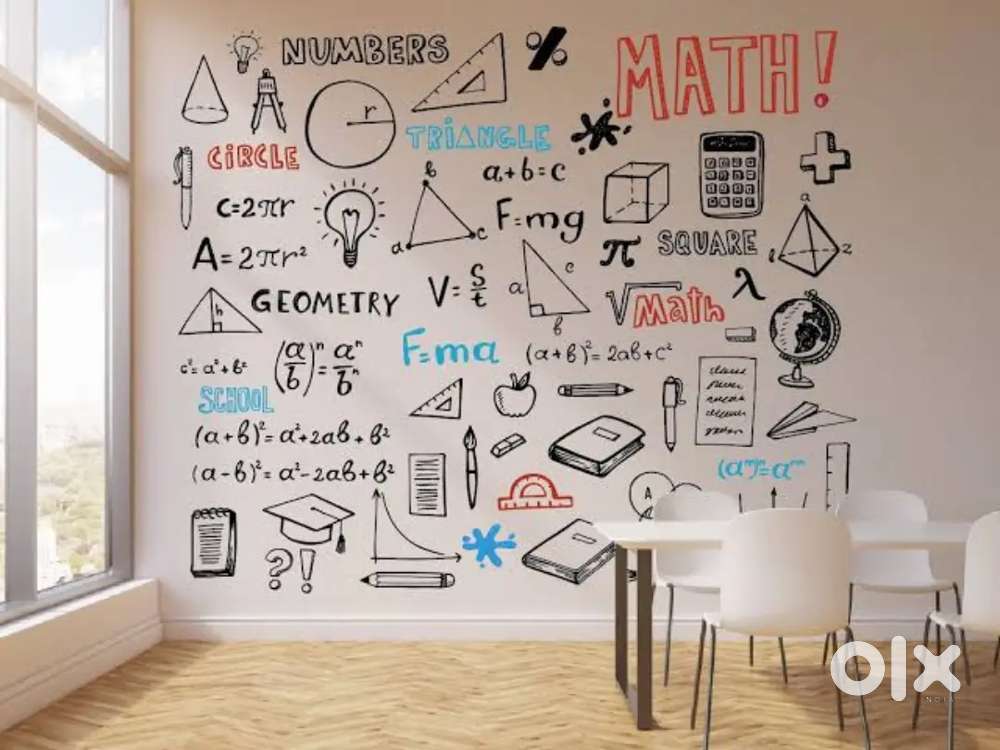 NUMBERS
%
MATH!
r
TRIANGLE
CIRCLE
b
a+b=c
a
C=2πr
F=mg
a c
c
π
SQUARE
l z
A=2πr²
a
V=S/t
b
λ
h
GEOMETRY
√Math
F=ma
(a+b)²=2ab+c²
c²=a²+b²
(a/b)ⁿ=aⁿ/bⁿ
SCHOOL
(a+b)²=a²+2ab+b²
(a-b)²=a²-2ab+b²
(aᵐ)ⁿ=aᵐⁿ
A
?!
olx
INDIA